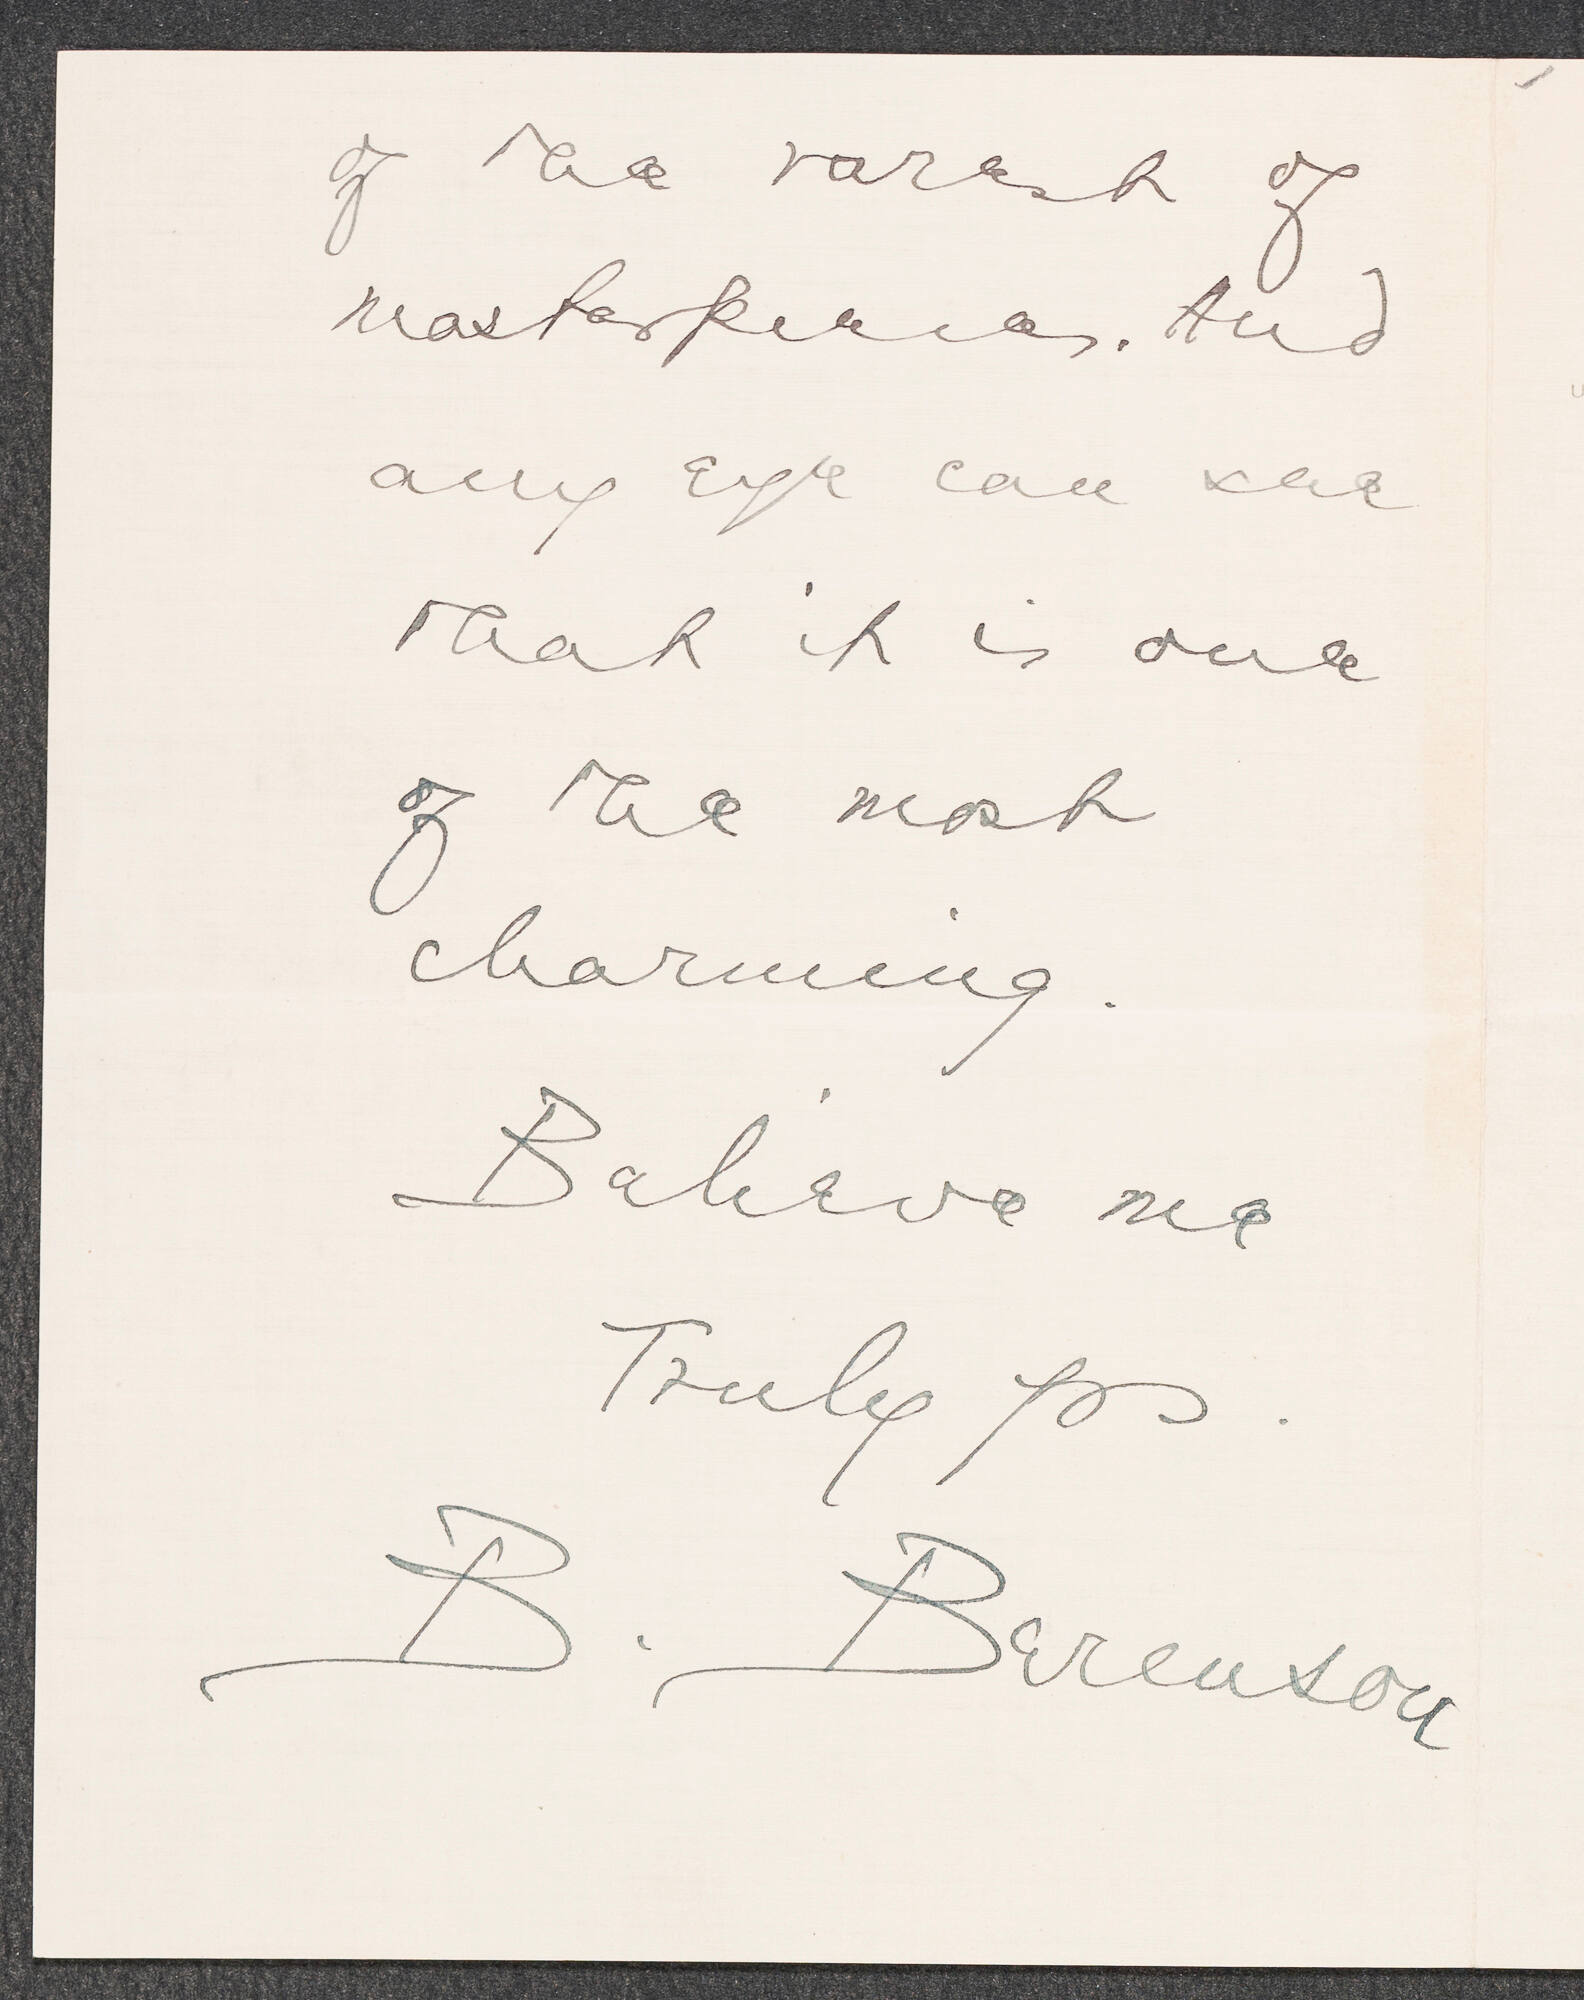 of the rarest of
masterpieces. And
any eye can see
that it is one
of the most
charming.
Believe me
Truly yrs.
B. Berenson